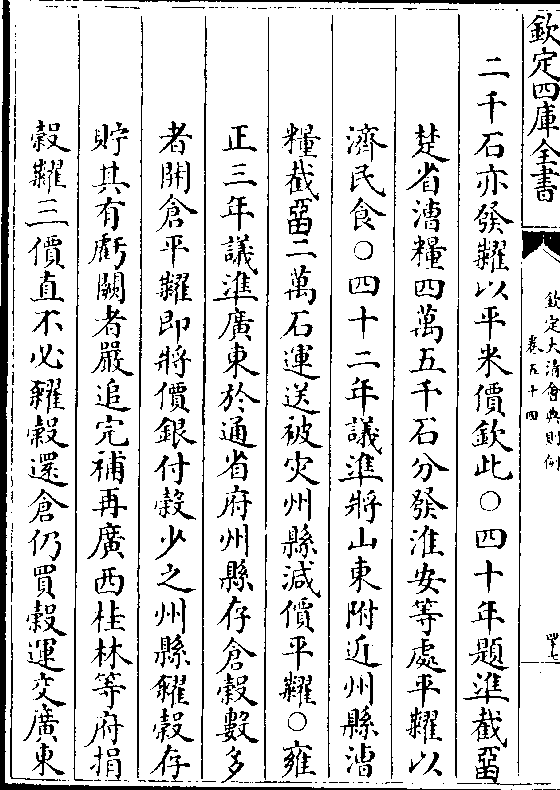 欽定四庫全書
欽定大清會典則例
卷五十四
四七
二千石亦發糶以平米價欽此○四十年題準截留
楚省漕糧四萬五千石分發淮安等處平糶以
濟民食○四十二年議準將山東附近州縣漕
糧截留二萬石運送被災州縣減價平糶○雍
正三年議準廣東於通省府州縣存倉穀數多
者開倉平糶即將價銀付穀少之州縣糴穀存
貯其有虧闕者嚴追完補再廣西桂林等府捐
穀糶三價直不必糴穀還倉仍買穀運交廣東